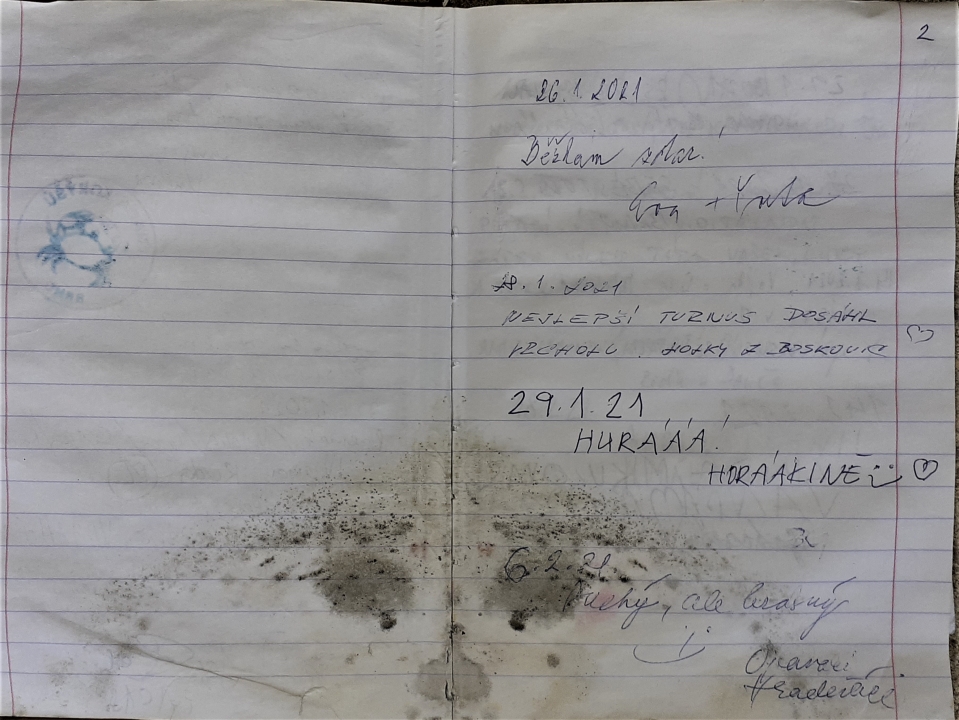 2
26.1.2021
Běžkam zdar!
Eva +
28.1.2021
NEJLEPŠÍ TURNUS DOSÁHL
VRCHOLU. HOLKY Z BOSKOVIC
29.1.21
HURÁÁÁ!
HORÁÁKINĚ
6.2.21
, ale krásný